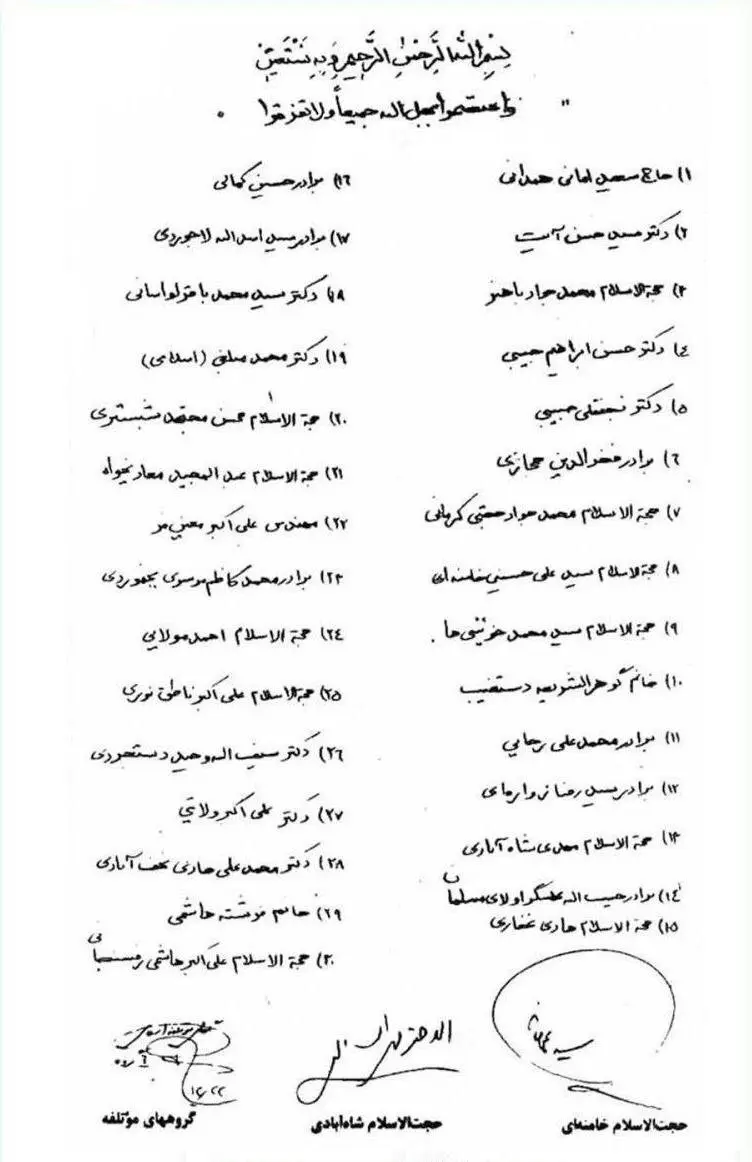 بسم الله الرحمن الرحیم وبه نستعین
" واعتصموا بحبل الله جمیعاً ولا تفرقوا "
۱) حاج سعید امانی همدانی
۲) دکتر سید حسن آیت
۳) حجة الاسلام محمد جواد باهنر
۴) دکتر حسن ابراهیم حبیبی
۵) دکتر نجفقلی حبیبی
۶) برادر فخرالدین حجازی
۷) حجة الاسلام محمد جواد حجتی کرمانی
۸) حجة الاسلام سید علی حسینی خامنه‌ای
۹) حجة الاسلام سید محمد خوئینی ها
۱۰) خانم گوهرالشریعه دستغیب
۱۱) برادر محمد علی رجایی
۱۲) برادر سید رضا زواره‌ای
۱۳) حجة الاسلام مهدی شاه آبادی
۱۴) برادر حبیب اله عسگراولادی مسلمان
۱۵) حجة الاسلام هادی غفاری
۱۶) برادر حسین کمالی
۱۷) برادر سید اسدالله لاجوردی
۱۸) دکتر سید محمد باقر لواسانی
۱۹) دکتر محمد مبلغی (اسلامی)
۲۰) حجة الاسلام محسن مجتهد شبستری
۲۱) حجة الاسلام عبدالمجید معادیخواه
۲۲) مهندس علی اکبر معین فر
۲۳) برادر محمد کاظم موسوی بجنوردی
۲۴) حجة الاسلام احمد مولایی
۲۵) حجة الاسلام علی اکبر ناطق نوری
۲۶) دکتر سیف اله وحید دستجردی
۲۷) دکتر علی اکبر ولایتی
۲۸) دکتر محمد علی هادی نجف آبادی
۲۹) خانم فرشته هاشمی
۳۰) حجة الاسلام علی اکبر هاشمی رفسنجانی
۱۲/۲۲
حجت‌الاسلام خامنه‌ای
حجت‌الاسلام شاه‌آبادی
گروههای مؤتلفه